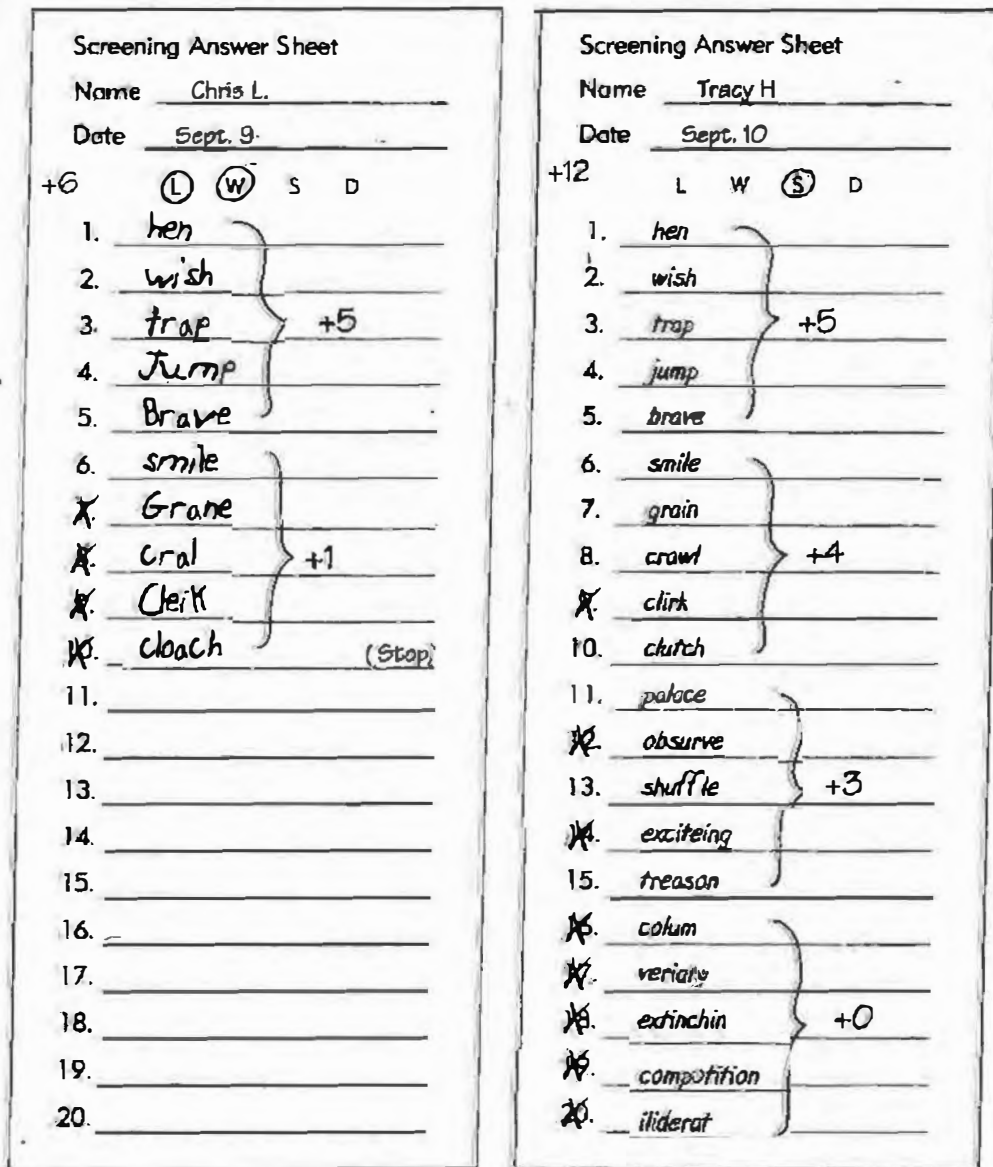 Screening Answer Sheet
Name Chris L.
Date Sept. 9
+6 L W S D
1. hen
2. wish
3. trap +5
4. Jump
5. Brave
6. smile
7. Grane
8. cral +1
9. Cleik
10. cloach (Stop)
11.
12.
13.
14.
15.
16.
17.
18.
19.
20.
Screening Answer Sheet
Name Tracy H
Date Sept. 10
+12 L W S D
1. hen
2. wish
3. trap +5
4. jump
5. brave
6. smile
7. grain
8. crawl +4
9. clirk
10. clutch
11. palace
12. obsurve
13. shuffle +3
14. exciteing
15. treason
16. colum
17.
18. extinchin +0
19. compotition
20. iliderat